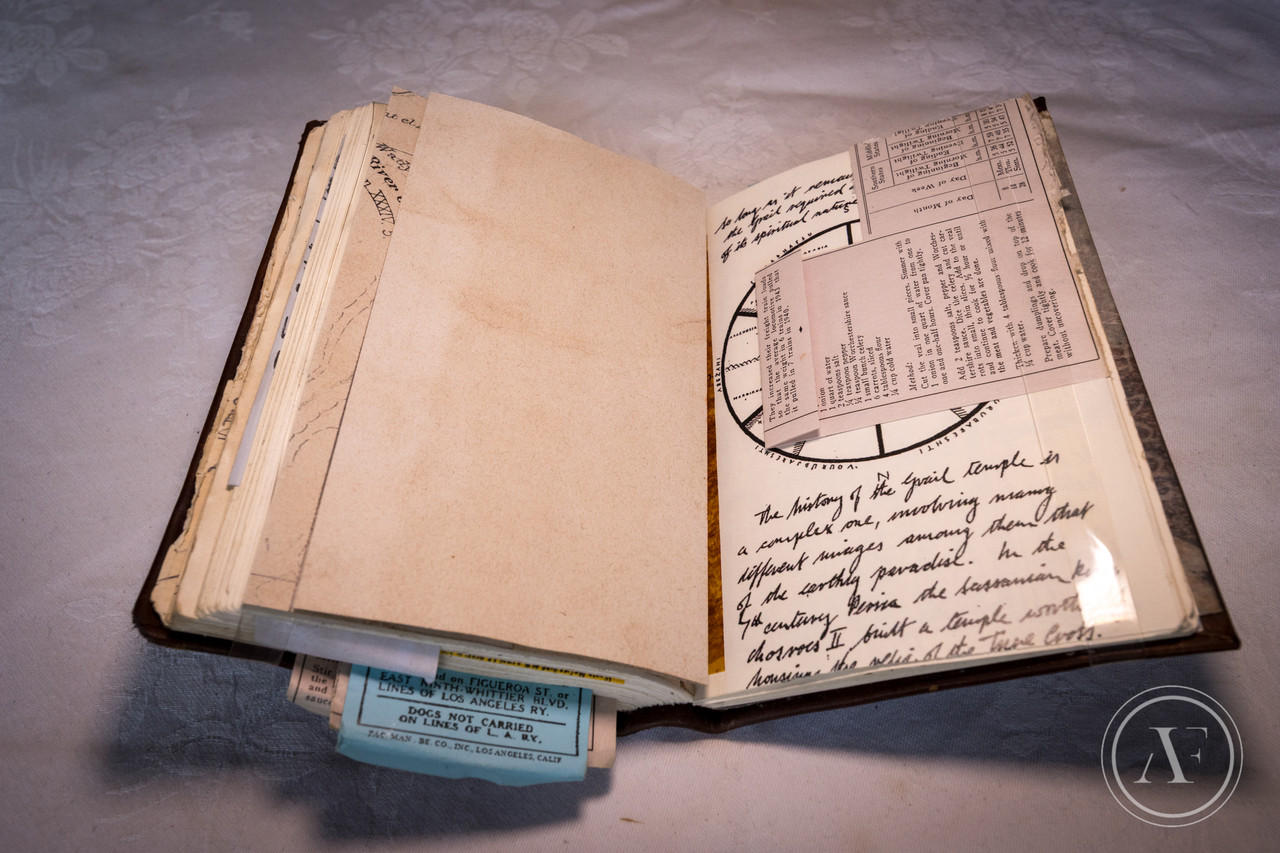 River
XXXIV
so long as it remain
the Grail required
of its spiritual nature
AREZAHI
VOURUBARESHTI
Southern
States
Middle
States
Beginning of
Morning Twilight
Ending of
Evening Twilight
Beginning of
Morning Twilight
Ending of
Evening Twilight
Day of Week
Day of Month
Mon.
Thu.
Sun.
They increased their freight train loads
so that the average locomotive pulled
the same weight in 6 trains in 1943 that
it pulled in 7 trains in 1940.
1 onion
1 quart of water
2 teaspoons salt
¼ teaspoon pepper
½ teaspoons Worchestershire sauce
1 small bunch celery
6 carrots, sliced
4 tablespoons flour
¼ cup cold water
Method:
Cut the veal into small pieces. Simmer with
onion in one quart of water from one to
one and one-half hours. Cover pan tightly.
Add 2 teaspoons salt, pepper and Worches-
tershire sauce. Dice the celery and cut car-
rots into small, thin slices. Add to the veal
and continue to cook for ½ hour or until
the meat and vegetables are done.
Thicken with 4 tablespoons flour mixed with
¼ cup water.
Prepare dumplings and drop on top of the
meat. Cover tightly and cook for 12 minutes
without uncovering.
The history of the Grail temple is
a complex one, involving many
different images among them that
of the earthly paradise. In the
7th century Persia the Sassanian k
Chosroes II, built a temple worth
housing the relic of the True Cross.
Stir
the
and
sauce
d on FIGUEROA ST. or
EAST NINTH-WHITTIER BLVD.
LINES OF LOS ANGELES RY.
DOGS NOT CARRIED
ON LINES OF L. A. RY.
PAC. MAN. BE. CO., INC., LOS ANGELES, CALIF
AF